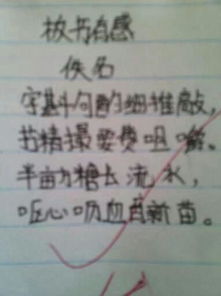 板书有感
佚名
字斟句酌细推敲，
书精撮要费咀嚼。
半亩方塘长流水，
呕心沥血育新苗。